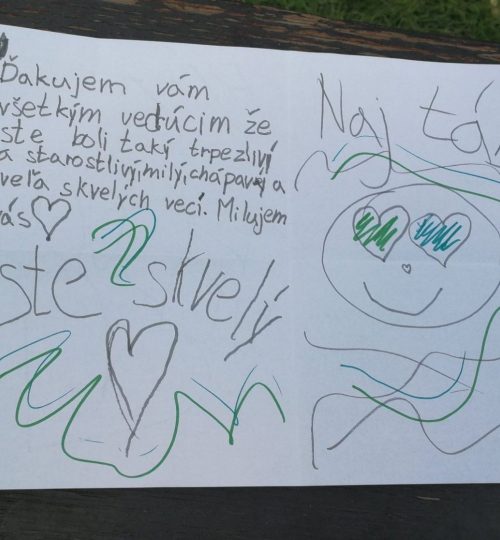 Ďakujem vám
všetkým vedúcim že
ste boli takí trpezliví
a starostliví,milý,chápaví a
veľa skvelých vecí. Milujem
vás
ste skvelý
Naj